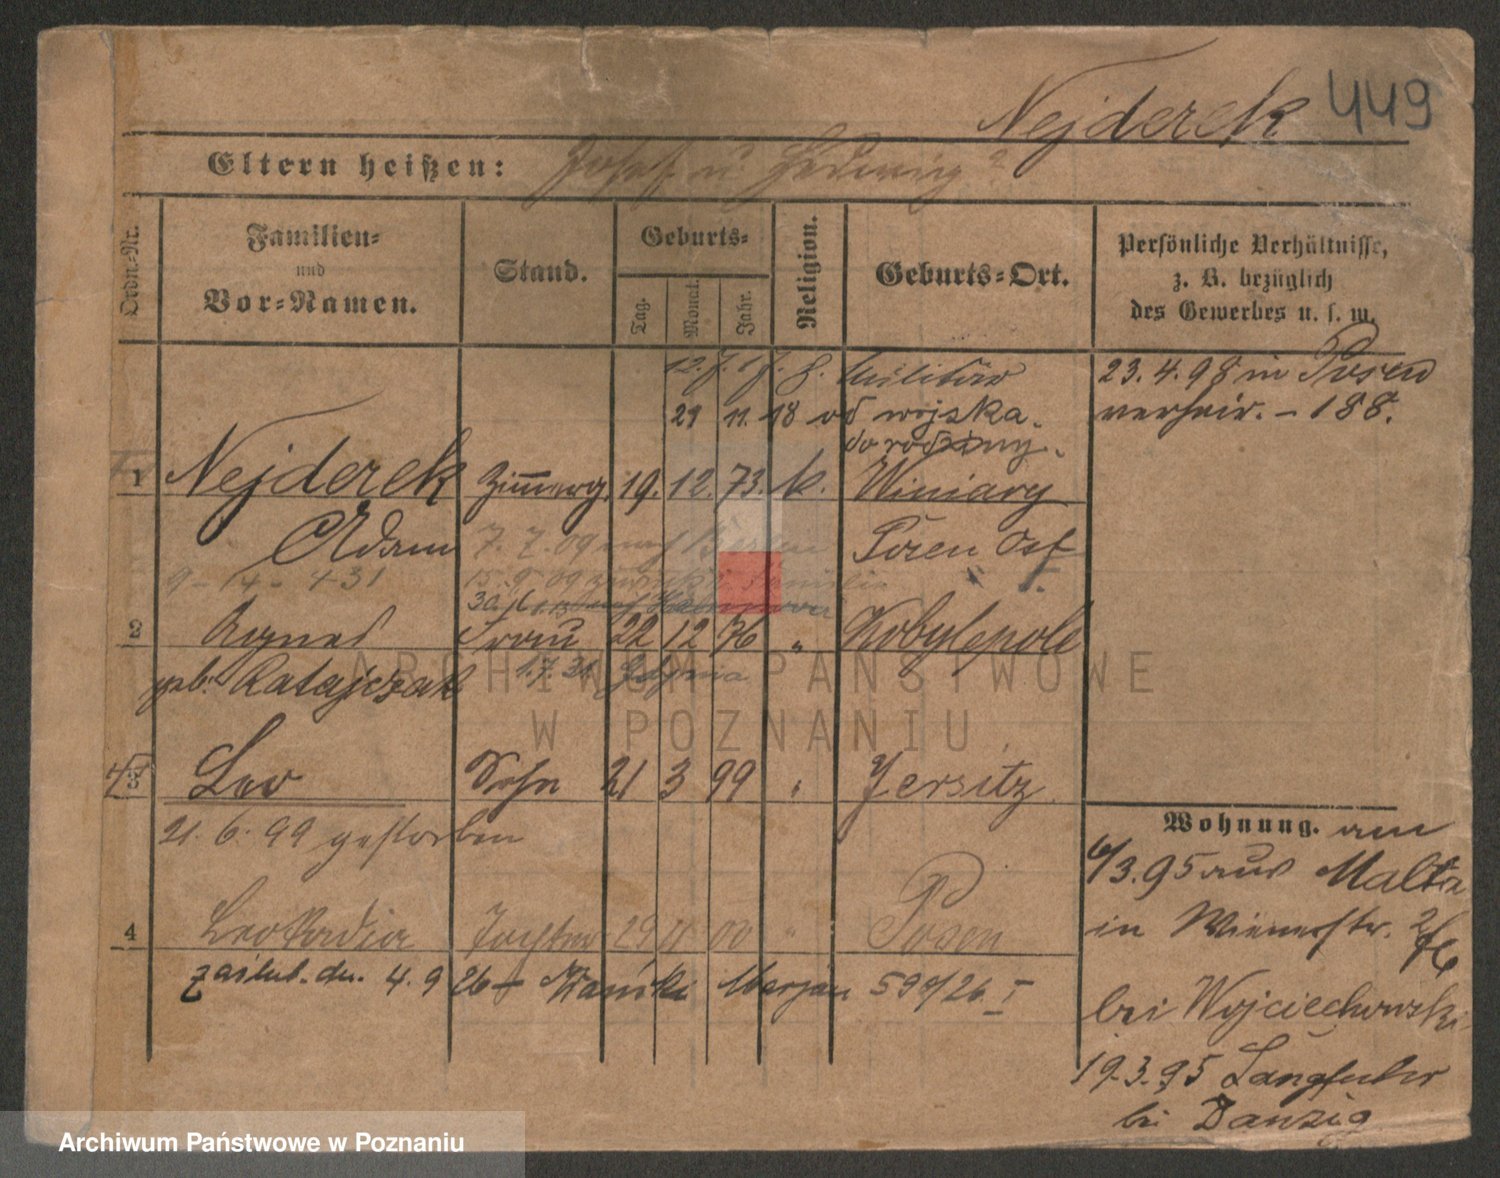 Nejderek 449
Eltern heißen: Josef u Hedwig
Ordn-Nr.
Familien-
und
Vor-Namen.
Stand.
Geburts-
Tag.
Monat.
Jahr.
Religion.
Geburts-Ort.
Persönliche Verhältnisse,
z. B. bezüglich
des Gewerbes u. s. w.
12. 7. 17. z. Militär
29 11. 18 od wojska
do rodziny.
23. 4. 98 in Posen
verheir. - 188.
1 Nejderek 19. 12. 73. k. Winiary
Adam 7. 7. 09 nach Berlin Posen Ost
9-14-431 15. 9. 09
2 Agnes Frau 22 12 76 " Kobylepole
geb. Ratajczak 1.7.21 Gdynia
3 Leo Sohn 21 3 99 " Jersitz
21. 6. 99 gestorben
4 Leokadia Tochter 29 11 00 " Posen
zaślub. dn. 4. 9 26 Marjan 590/26 I
Wohnung. am
6/3.95 aus Malta
in Wienerstr.
bei Wojciechowski
19.3.95 Langfuhr
bei Danzig
ARCHIWUM PAŃSTWOWE
W POZNANIU
Archiwum Państwowe w Poznaniu